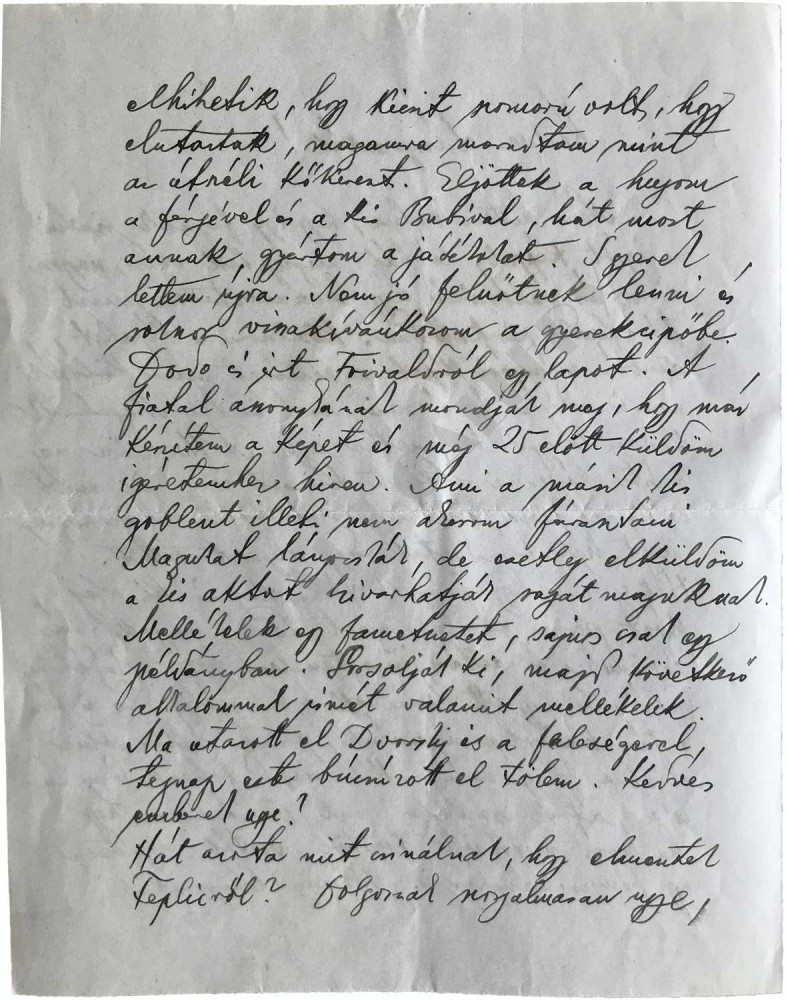 Elhihetik, hogy kicsit szomorú volt, hogy
elutaztak, magamra maradtam mint
az útszéli kőkereszt. Eljöttek a hugom
a férjével és a kis Bubival, hát most
annak gyártom a játékokat. Gyerek
lettem újra. Nem jó felnőtnek lenni és
sokszor visszakívánkozom a gyerekcipőbe.
Dodo is írt Frivaldról egy lapot. A
fiatal anyának mondják meg, hogy már
készítem a képet és még 25 előtt küldöm
igéretemhez híven. Ami a másik kis
goblent illeti nem akarom fárasztani
Magukat, de esetleg elküldöm
a kis aktot kivarhatják saját maguknak.
Mellékelek egy fametszetet, sajnos csak egy
példányban. Sorsolják ki, majd következő
alkalommal ismét valamit mellékelek.
Ma utazott el Dvorský is a feleségével,
tegnap este búcsúzott el tőlem. Kedves
emberek ugye?
Hát azóta mit csinálnak, hogy elmentek
Teplicről? Dolgoznak szorgalmasan ugye,